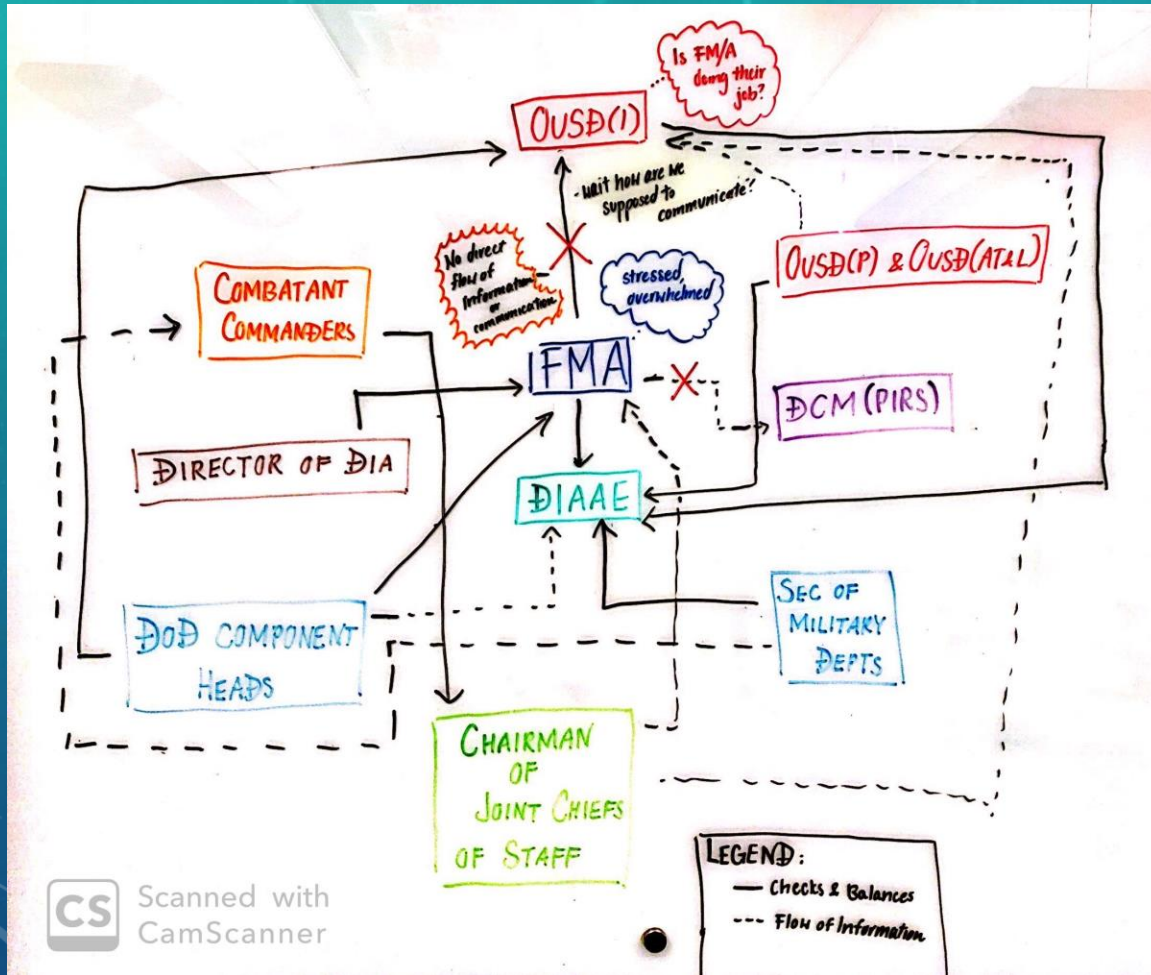 Is FM/A
doing their
job?
OUSD(I)
-wait how are we
supposed to
communicate?
No direct
flow of
Information
or
communication
stressed,
overwhelmed
OUSD(P) & OUSD(AT&L)
COMBATANT
COMMANDERS
FMA
DCM (PIRS)
DIRECTOR OF DIA
DIAAE
DOD COMPONENT
HEADS
SEC OF
MILITARY
DEPTS
CHAIRMAN
OF
JOINT CHIEFS
OF STAFF
LEGEND:
— Checks & Balances
--- Flow of Information
CS Scanned with
CamScanner